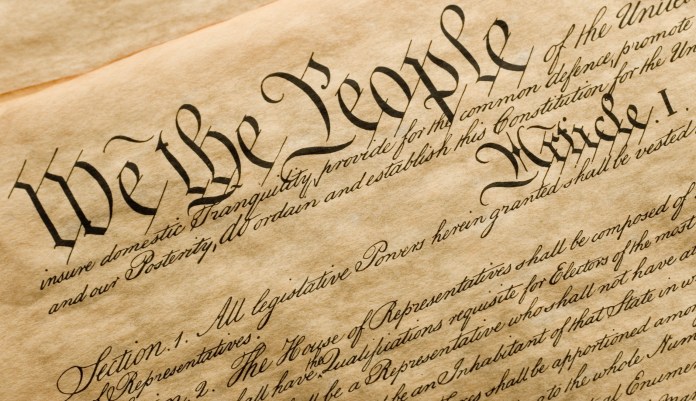 We the People of the United
insure domestic Tranquility, provide for the common defence, promote
and our Posterity, do ordain and establish this Constitution for the Un
Article. I.
Section. 1. All legislative Powers herein granted shall be vested
of Representatives.
2. The House of Representatives shall be composed of
shall have the Qualifications requisite for Electors of the most
shall be a Representative who shall not have at
be an Inhabitant of that State in w
shall be apportioned amon
to the whole Num
Enume